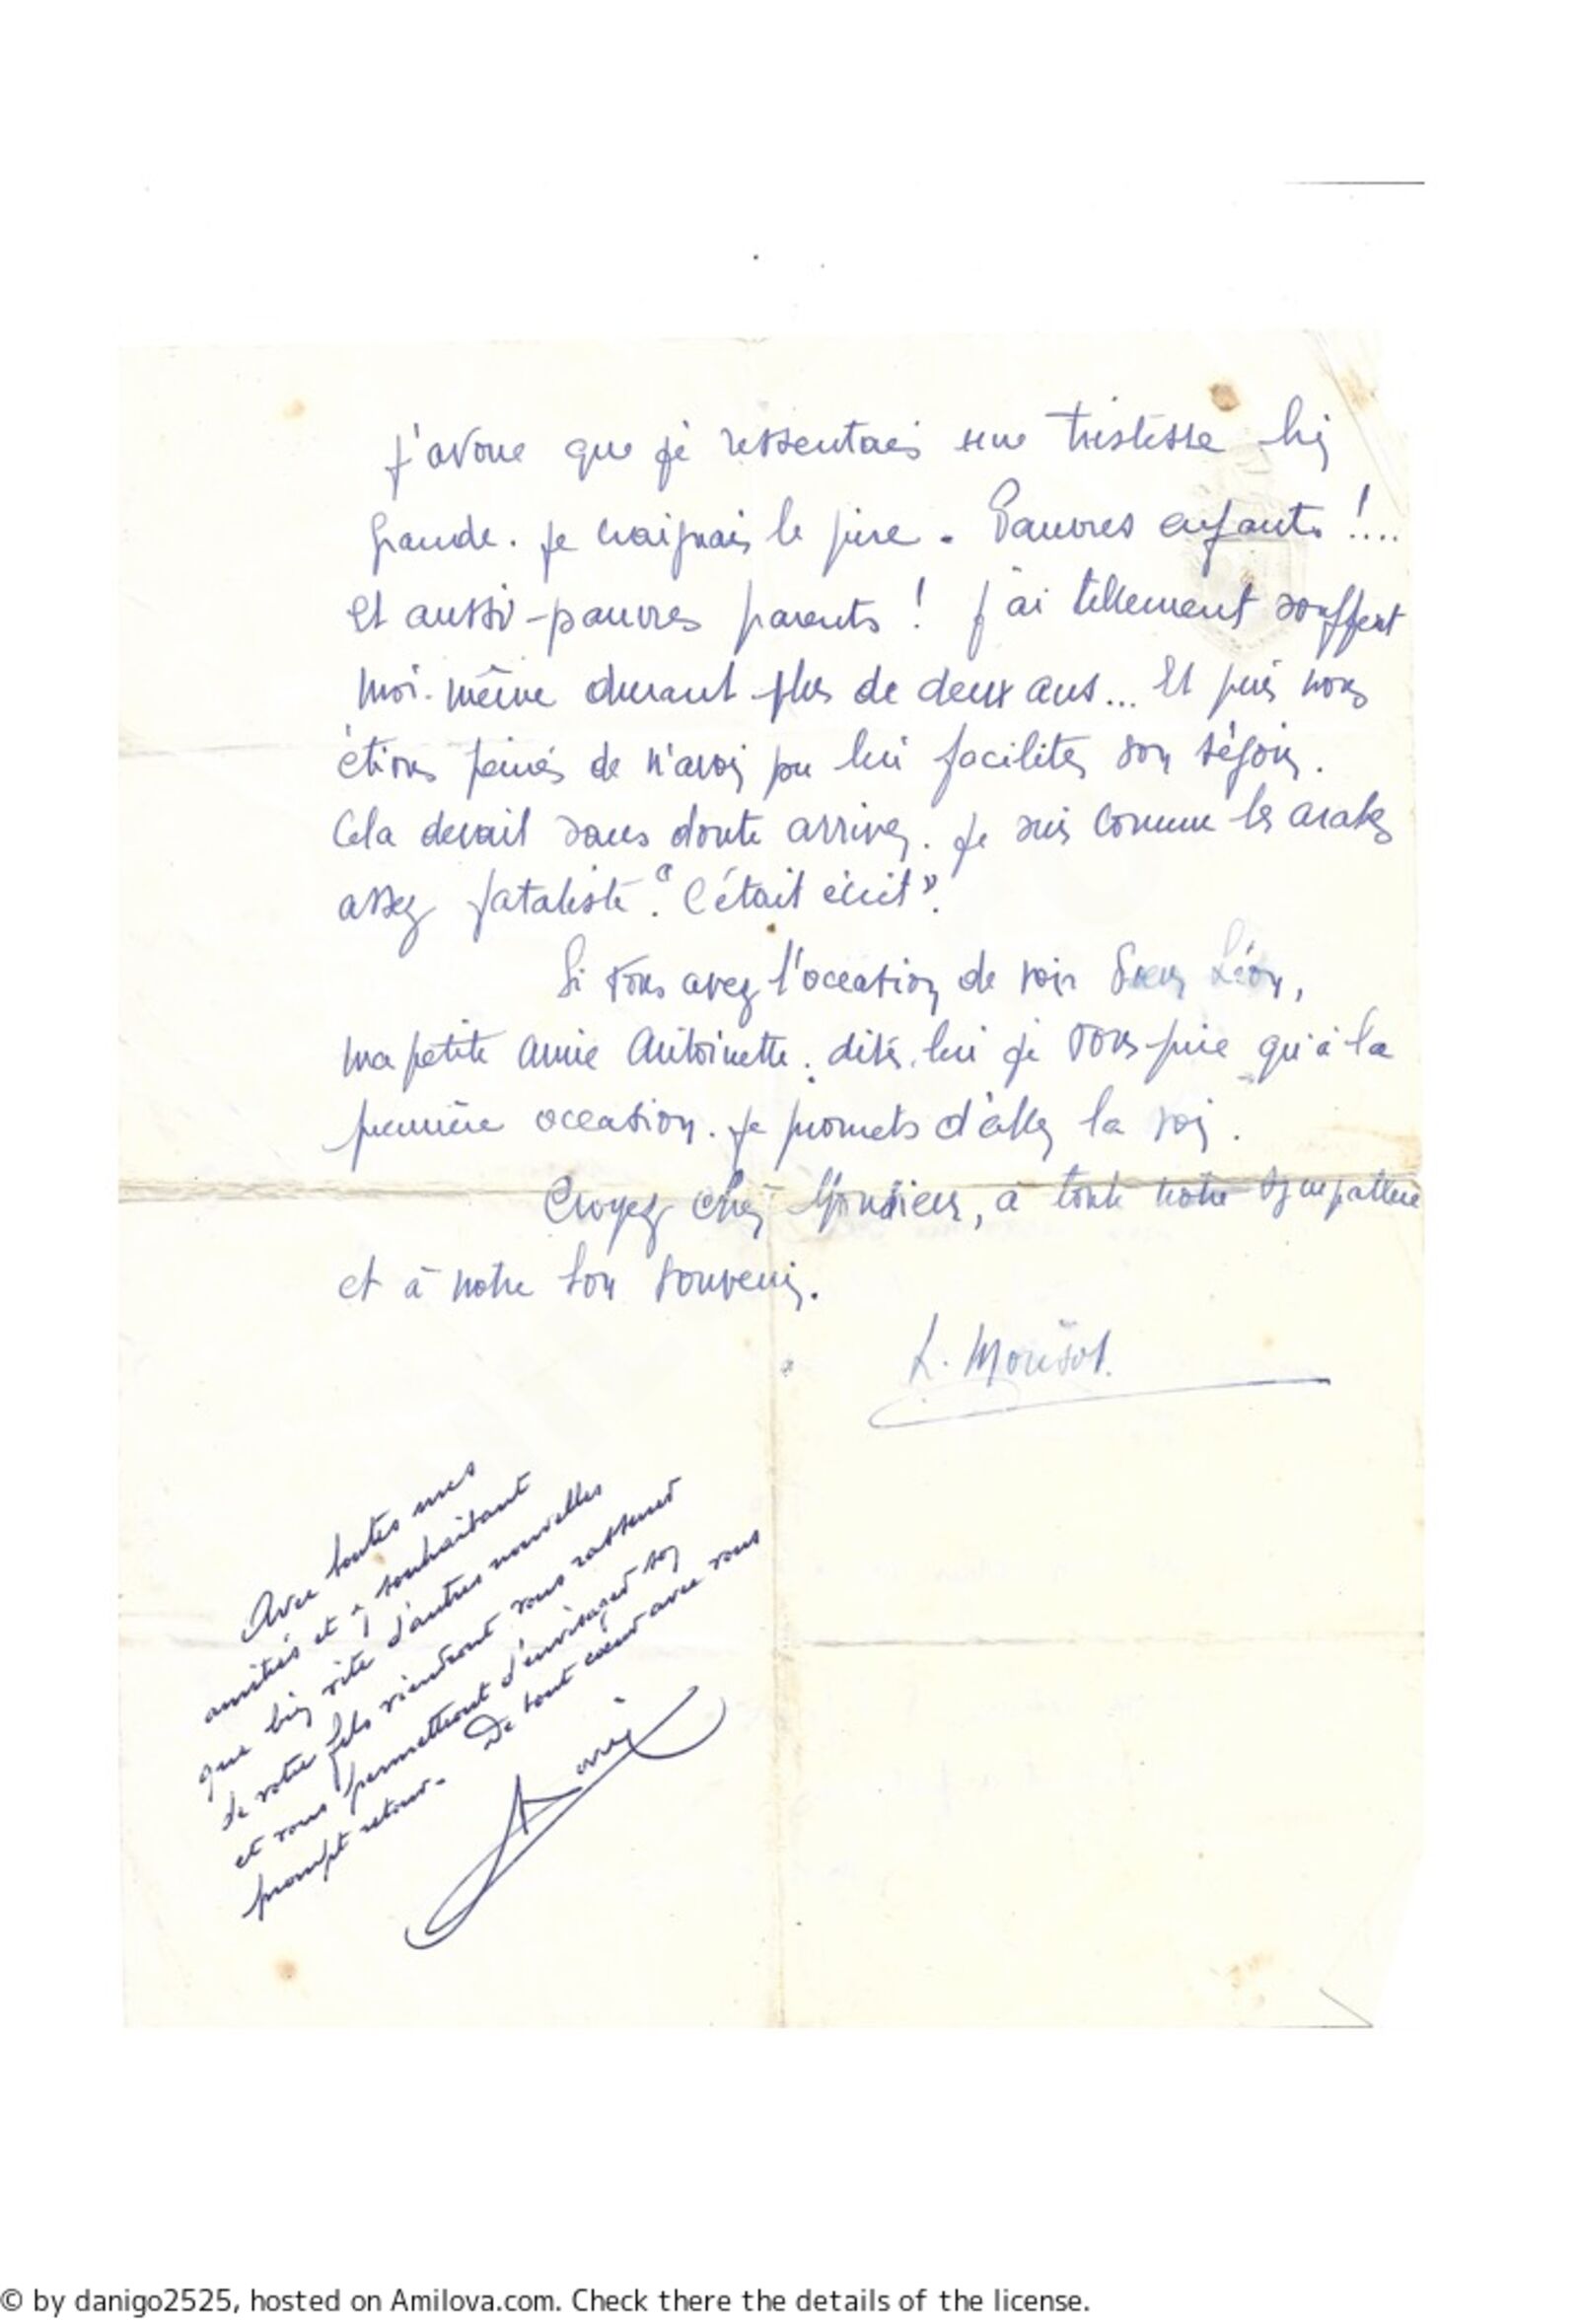 J'avoue que je ressentais une tristesse bien
grande. Je craignais le pire. Pauvres enfants !...
et aussi - pauvres parents ! J'ai tellement souffert
moi-même durant plus de deux ans... Et puis nous
étions peinés de n'avoir pu lui faciliter son séjour.
Cela devait sans doute arriver. Je suis comme les arabes
assez fataliste. "C'était écrit".
Si vous avez l'occasion de voir Soeur Léon,
ma petite amie Antoinette. dites-lui je vous prie qu'à la
première occasion. Je promets d'aller la voir.
Croyez cher Monsieur, à toute notre sympathie
et à notre bon souvenir.
L. Morisot.
Avec toutes mes
amitiés et souhaitant
que bien vite d'autres nouvelles
de votre fils viendront vous rassurer
et vous permettront d'envisager son
prompt retour. De tout coeur avec vous
© by danigo2525, hosted on Amilova.com. Check there the details of the license.